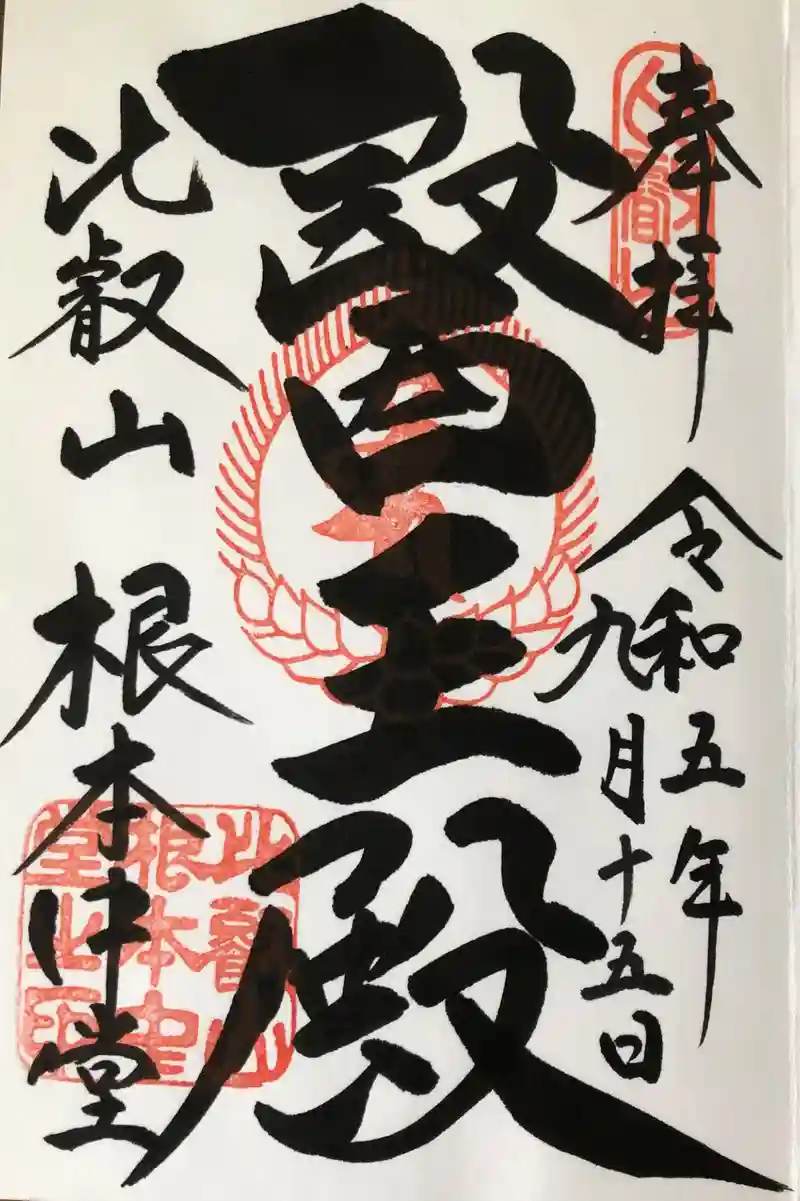 奉拝
令和五年
九月十五日
醫王殿
比叡山 根本中堂
比叡山
根本中
堂之璽